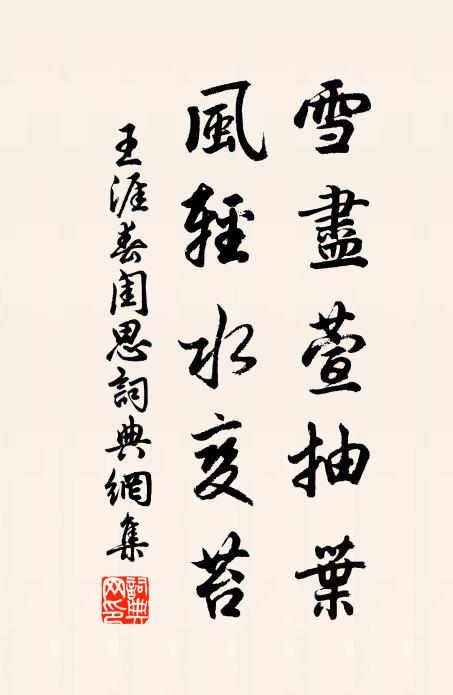 雪盡萱抽葉
風輕水變苔
王涯春閨思詞典網集
詞典網印